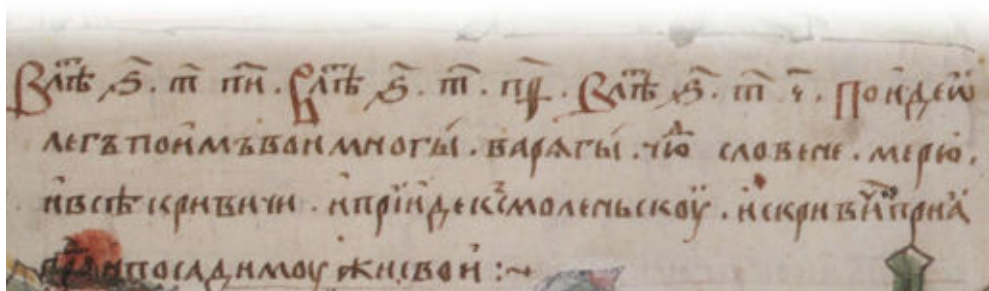 В лѣт҇ ҂ѕ҃. т҃ п҃и. В лѣт҇ ҂ѕ҃. т҃. п҃ѳ. В лѣт҇ ҂ѕ҃. т҃ ч҃. Поиде ѡ
легъ поимъ вои многы. варѧгы. чюⷣ словене. мерю.
и всѣ кривичи. и прїиде к смоленьскоу. и с кривичи прїꙗ
граⷣ и посади моужи свои :~